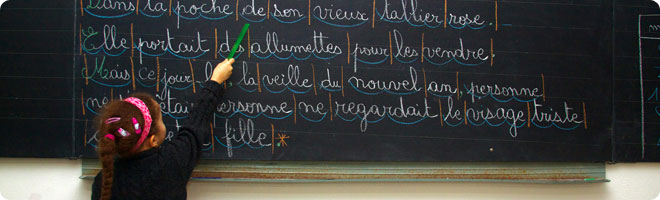 Dans la poche de son vieux tablier rose.
Elle portait des allumettes pour les vendre.
Mais ce jour là, la veille du nouvel an, personne
personne ne regardait le visage triste
fille.*